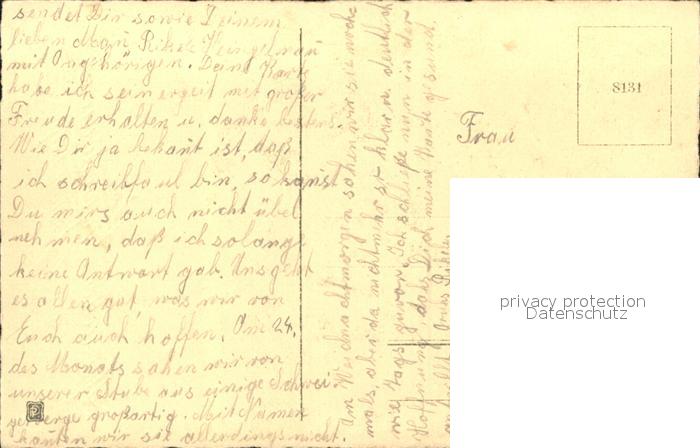 sendet Dir sowie Deinem
lieben Mann, Rikele
mit Angehörigen. Deine Karte
habe ich seinerzeit mit großer
Freude erhalten u. danke bestens.
Wie Dir ja bekañt ist, daß
ich schreibfaul bin, so kanst
Du mirs auch nicht übel
nehmen, daß ich solange
keine Antwort gab. Uns geht
es allen gut, was wir von
Euch auch hoffen. Am 24.
des Monats sahen wir von
unserer Stube aus einige Schwei-
zerberge großartig. Mit Namen
kañten wir sie allerdings nicht.
Am Weihnachtmorgen sahen wir sie noch-
mals, aber da nicht mehr so klar u. deutlich
wie Tags zuvor. Ich schließe nun in der
Hoffnung, daß Dich meine Karte gesund
Rikele.
8131
Frau
privacy protection
Datenschutz